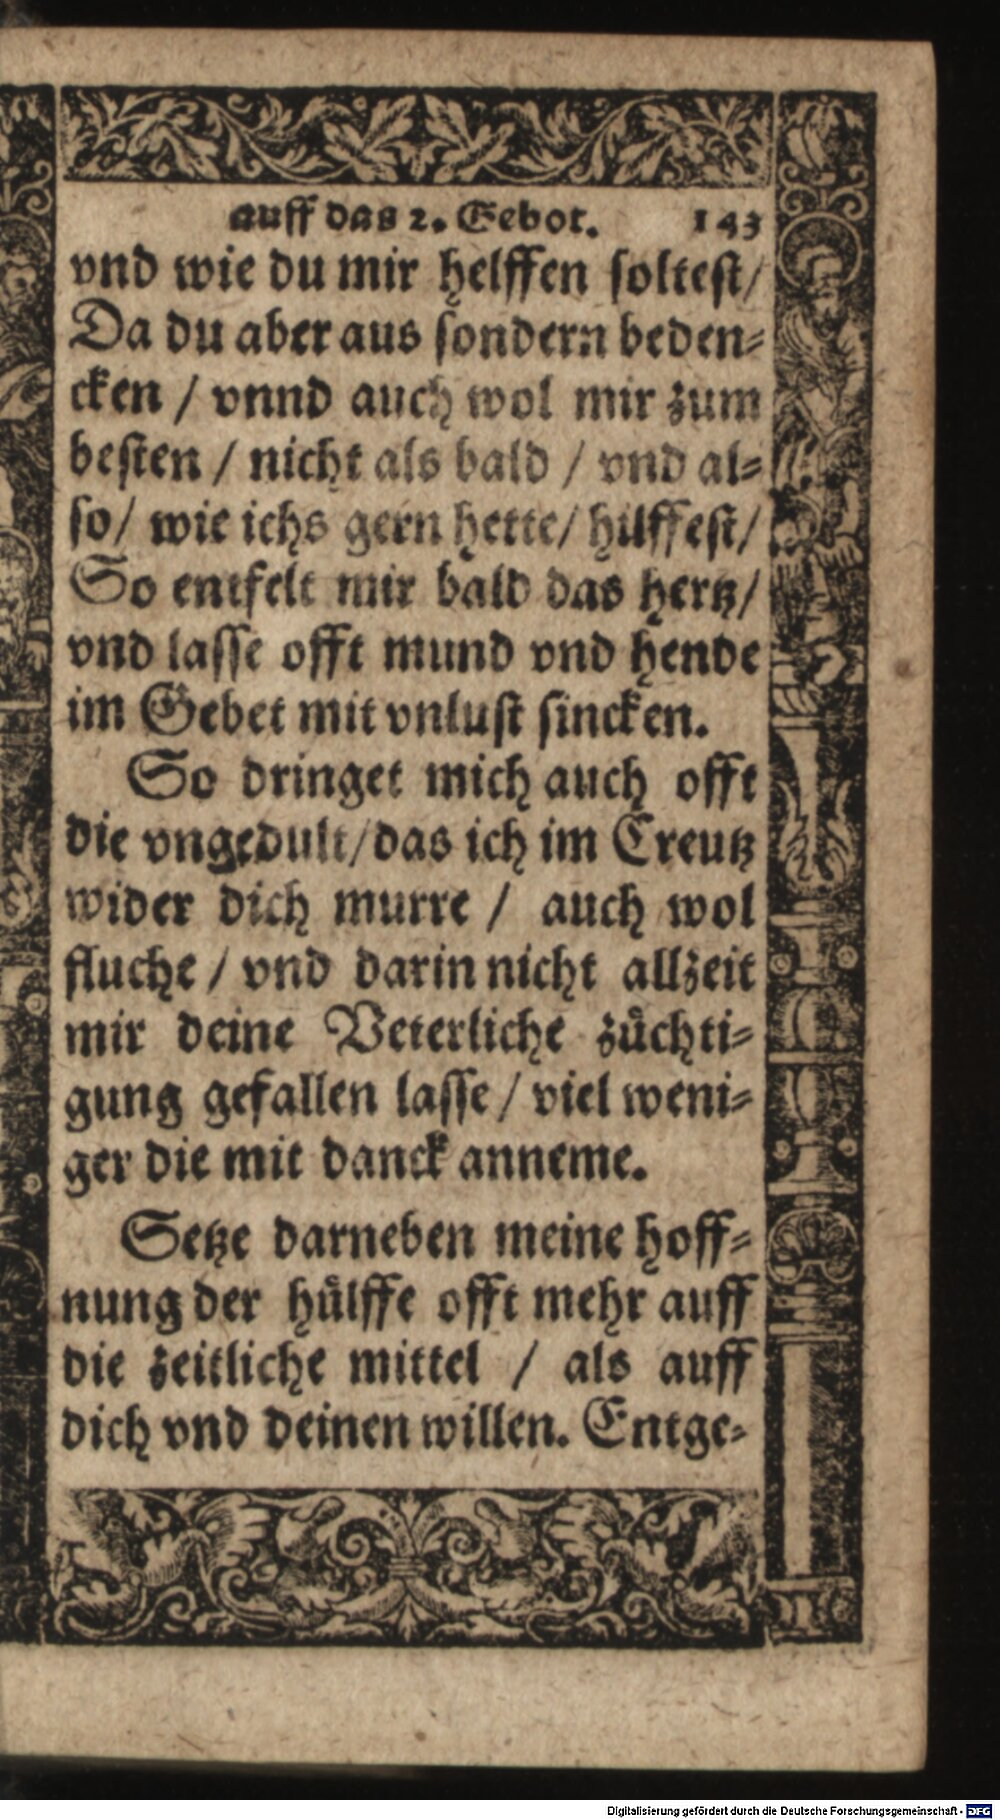 auff das 2. Gebot. 143
vnd wie du mir helffen soltest/
Da du aber aus sondern beden⸗
cken / vnnd auch wol mir zum
besten / nicht als bald / vnd al⸗
so/ wie ichs gern hette/ hilffest/
So entfelt mir bald das hertz/
vnd lasse offt mund vnd hende
im Gebet mit vnlust sincken.
So dringet mich auch offt
die vngedult/das ich im Creutz
wider dich murre / auch wol
fluche / vnd darin nicht allzeit
mir deine Veterliche zuͤchti⸗
gung gefallen lasse / viel weni⸗
ger die mit danck anneme.
Setze darneben meine hoff⸗
nung der huͤlffe offt mehr auff
die zeitliche mittel / als auff
dich vnd deinen willen. Entge⸗
Digitalisierung gefördert durch die Deutsche Forschungsgemeinschaft - DFG